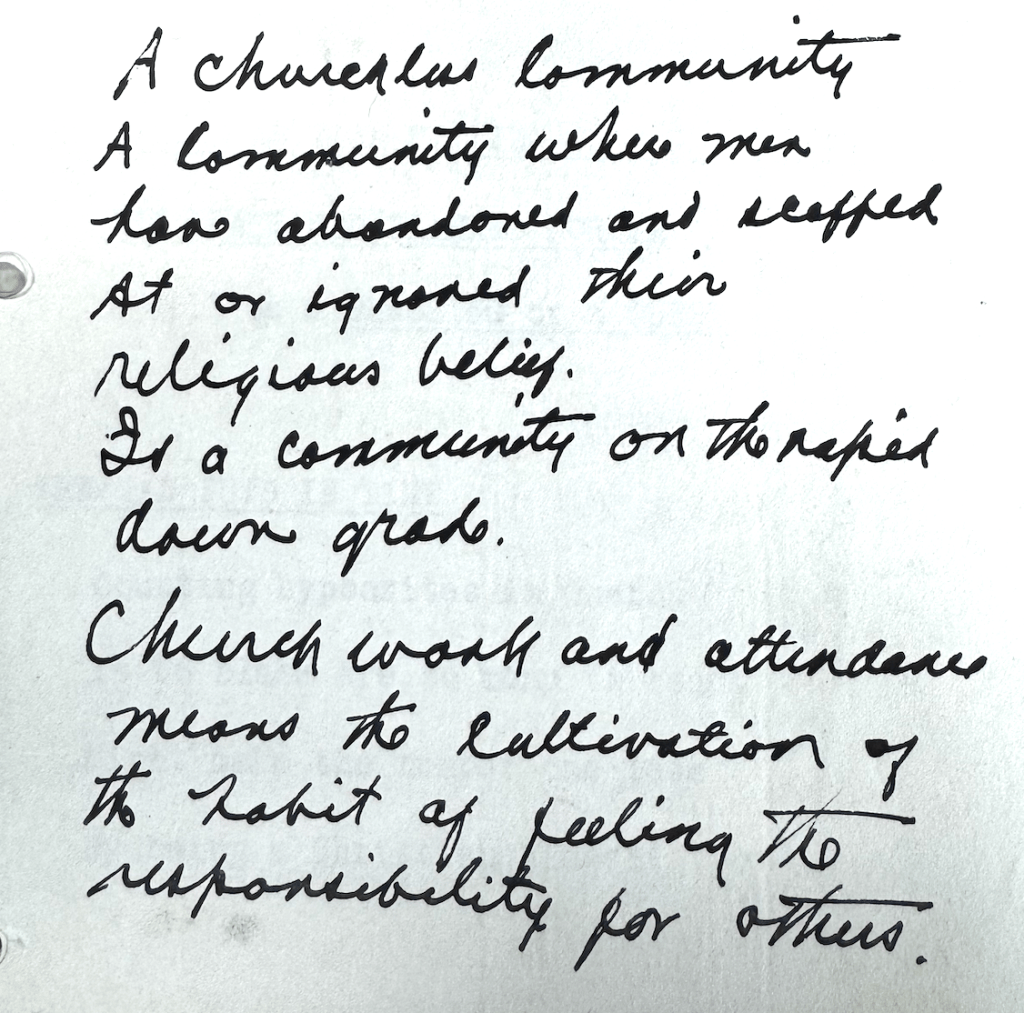 A churchless Community
A Community where men
have abandoned and scoffed
At or ignored their
religious belief.
Is a community on the rapid
down grade.
Church work and attendance
means the cultivation of
the habit of feeling the
responsibility for others.